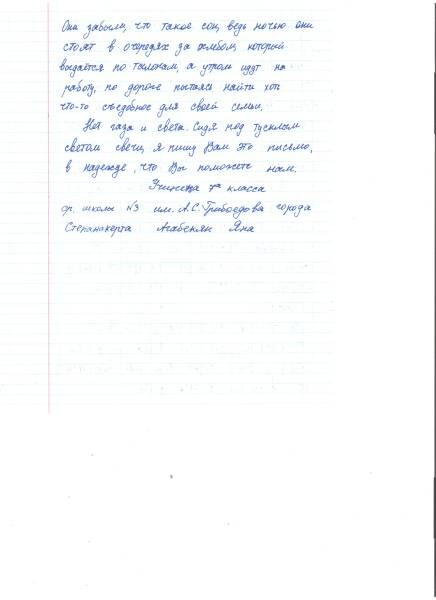 Они забыли, что такое сон, ведь ночью они
стоят в очередях за хлебом, который
выдаётся по талонам, а утром идут на
работу, по дороге пытаясь найти хоть
что-то съедобное для своей семьи.
Нет газа и света. Сидя под тусклым
светом свечи, я пишу Вам это письмо,
в надежде, что Вы поможете нам.
Ученица 7а класса
ср. школы №3 им. А.С. Грибоедова города
Степанакерта Агабекян Яна